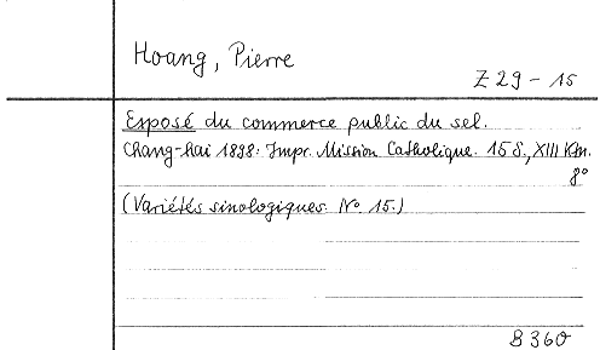 Hoang, Pierre
Z 29 - 15
Exposé du commerce public du sel.
Chang-hai 1898: Impr. Mission Catholique. 15 S., XIII Km.
8°
(Variétés sinologiques. No. 15.)
B 360